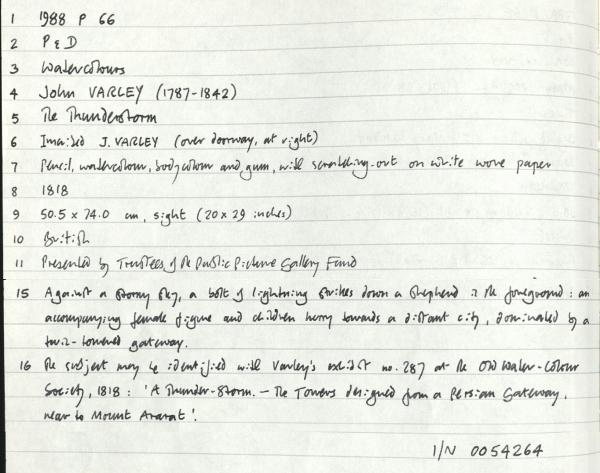 1 1988 P 66
2 P & D
3 Watercolours
4 John VARLEY (1787-1842)
5 The Thunderstorm
6 Inscribed J. VARLEY (over doorway, at right)
7 Pencil, watercolour, bodycolour and gum, with scratching-out on white wove paper
8 1818
9 50.5 x 74.0 cm, sight (20 x 29 inches)
10 British
11 Presented by Trustees of the Public Picture Gallery Fund
15 Against a stormy sky, a bolt of lightning strikes down a shepherd in the foreground: an
accompanying female figure and children hurry towards a distant city, dominated by a
twin-towered gateway.
16 The subject may be identified with Varley's exhibit no. 287 at the Old Water-Colour
Society, 1818: 'A Thunder-Storm. - The Towers designed from a Persian Gateway,
near to Mount Ararat'.
I/N 0054264